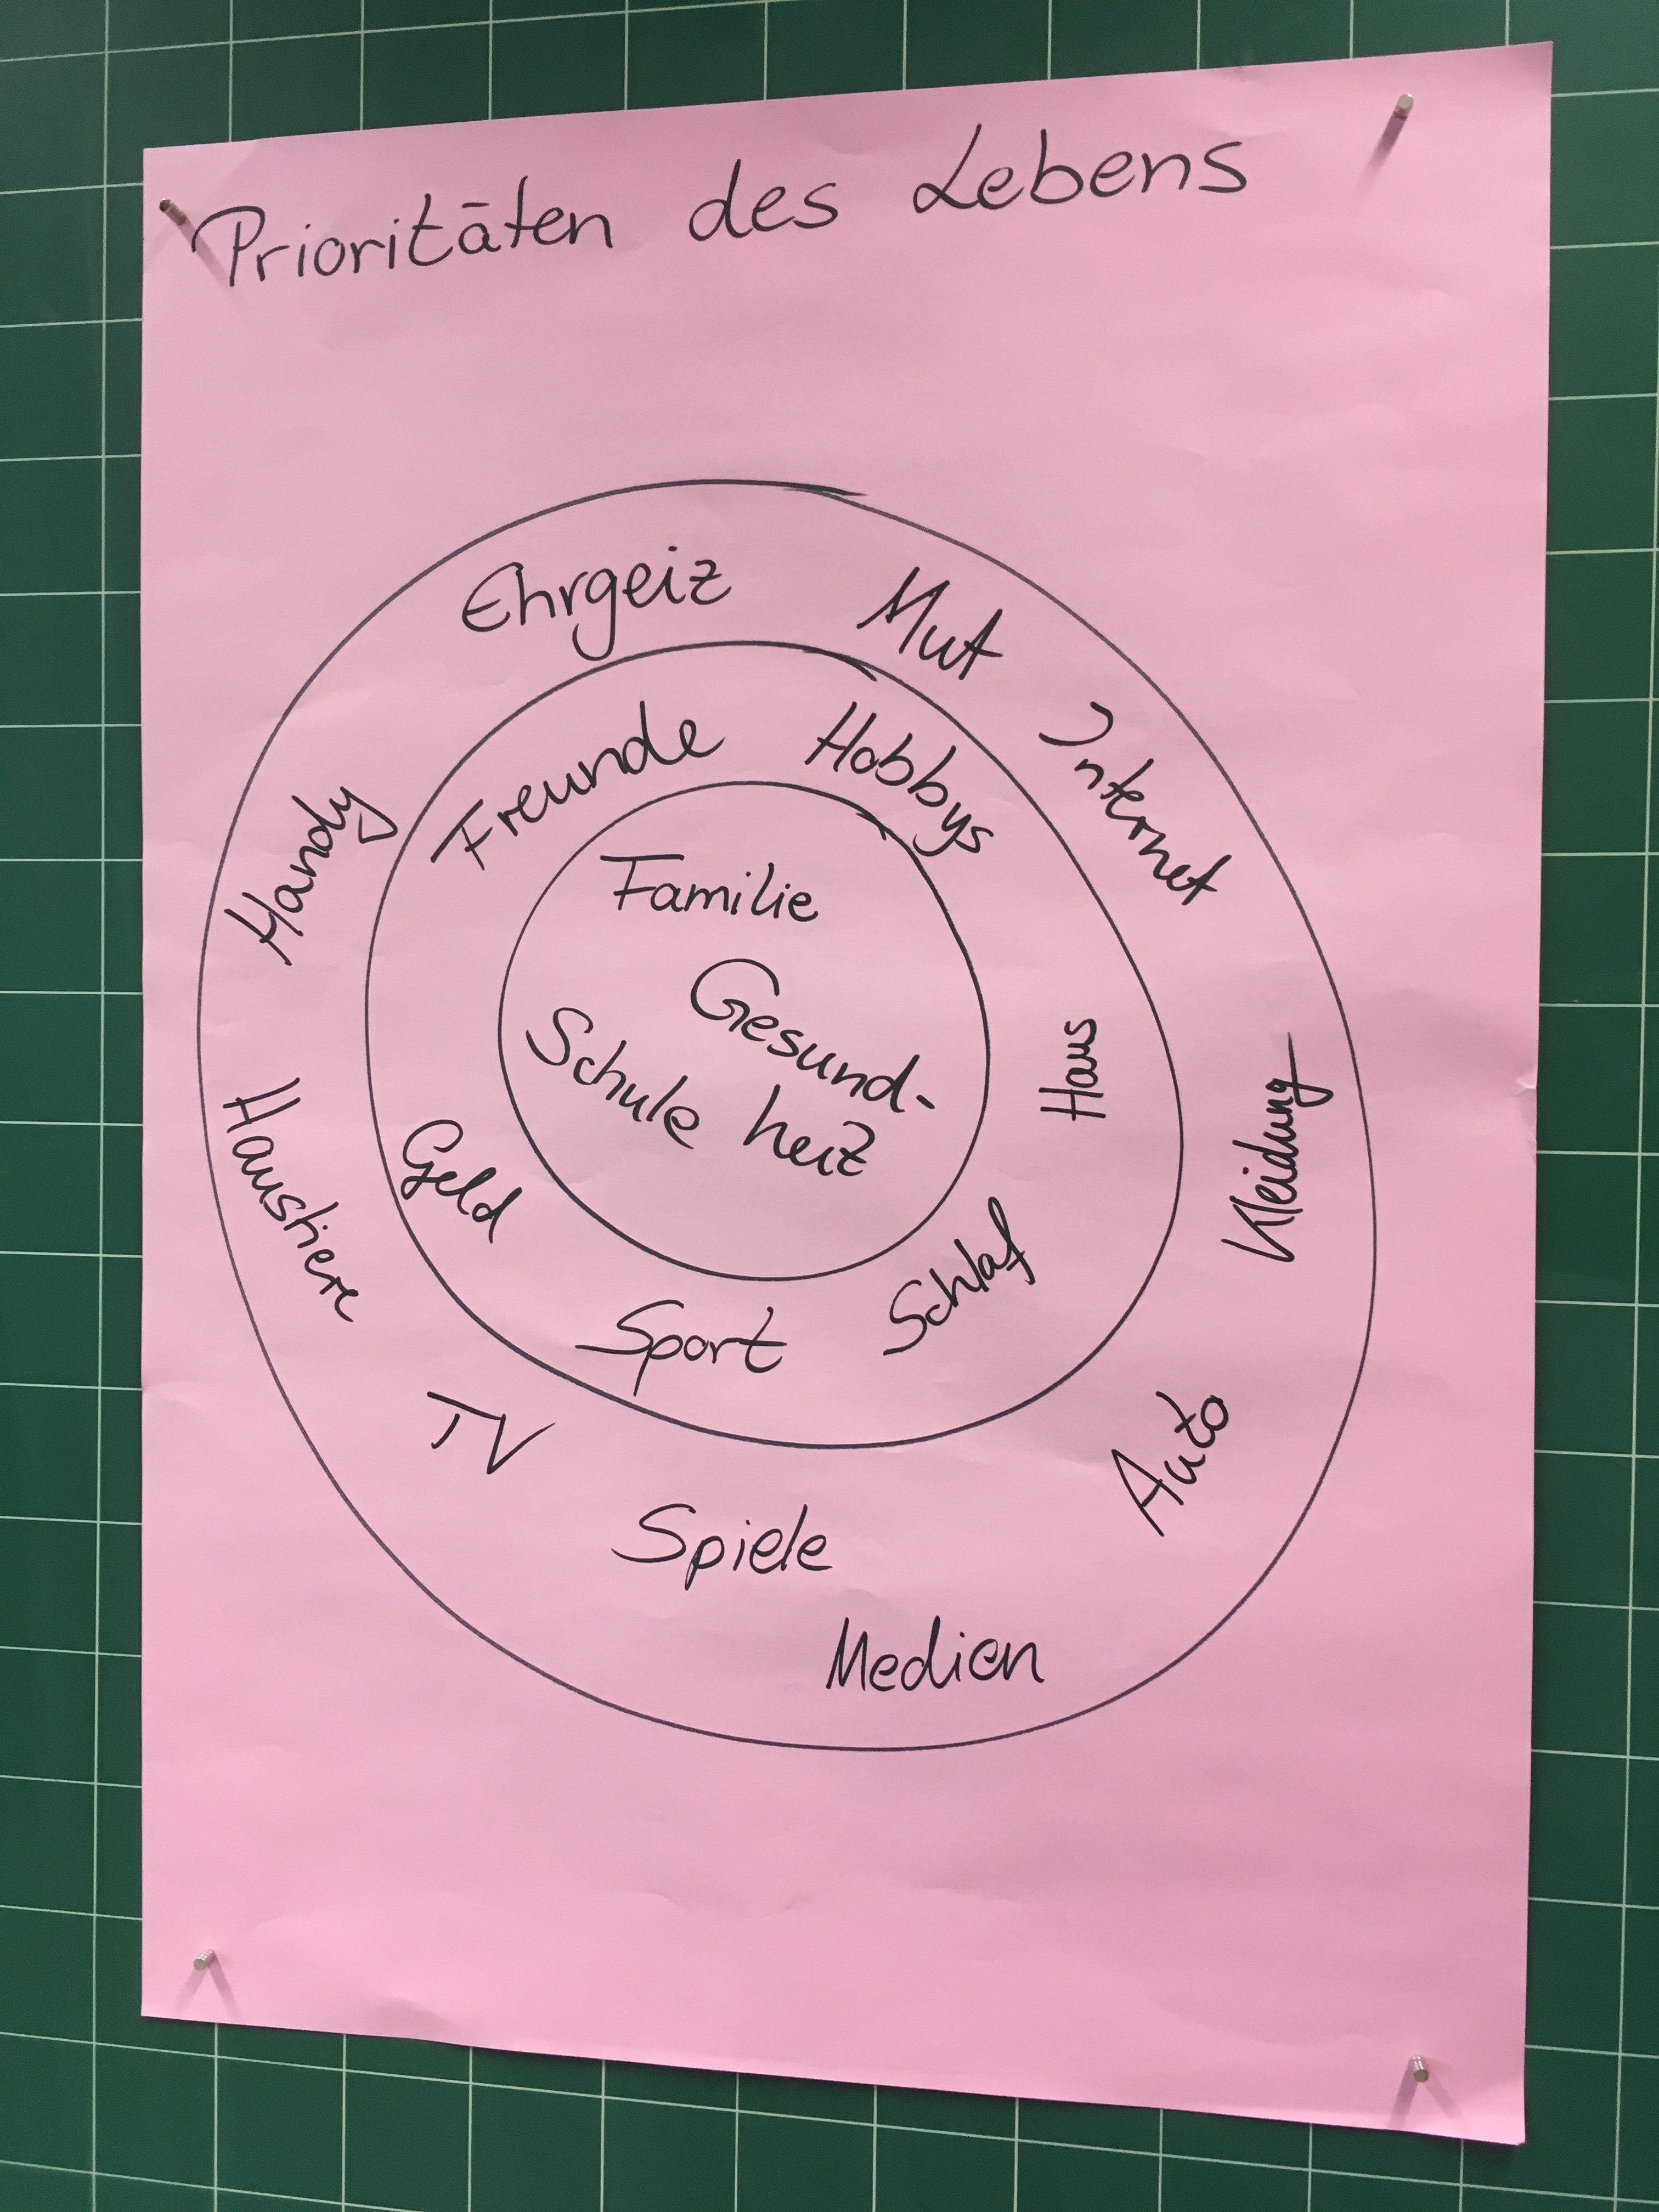 Prioritäten des Lebens
Ehrgeiz
Mut
Internet
Handy
Freunde
Hobbys
Familie
Gesund-
heit
Schule
Haus
Kleidung
Haustiere
Geld
Schlaf
Sport
TV
Auto
Spiele
Medien